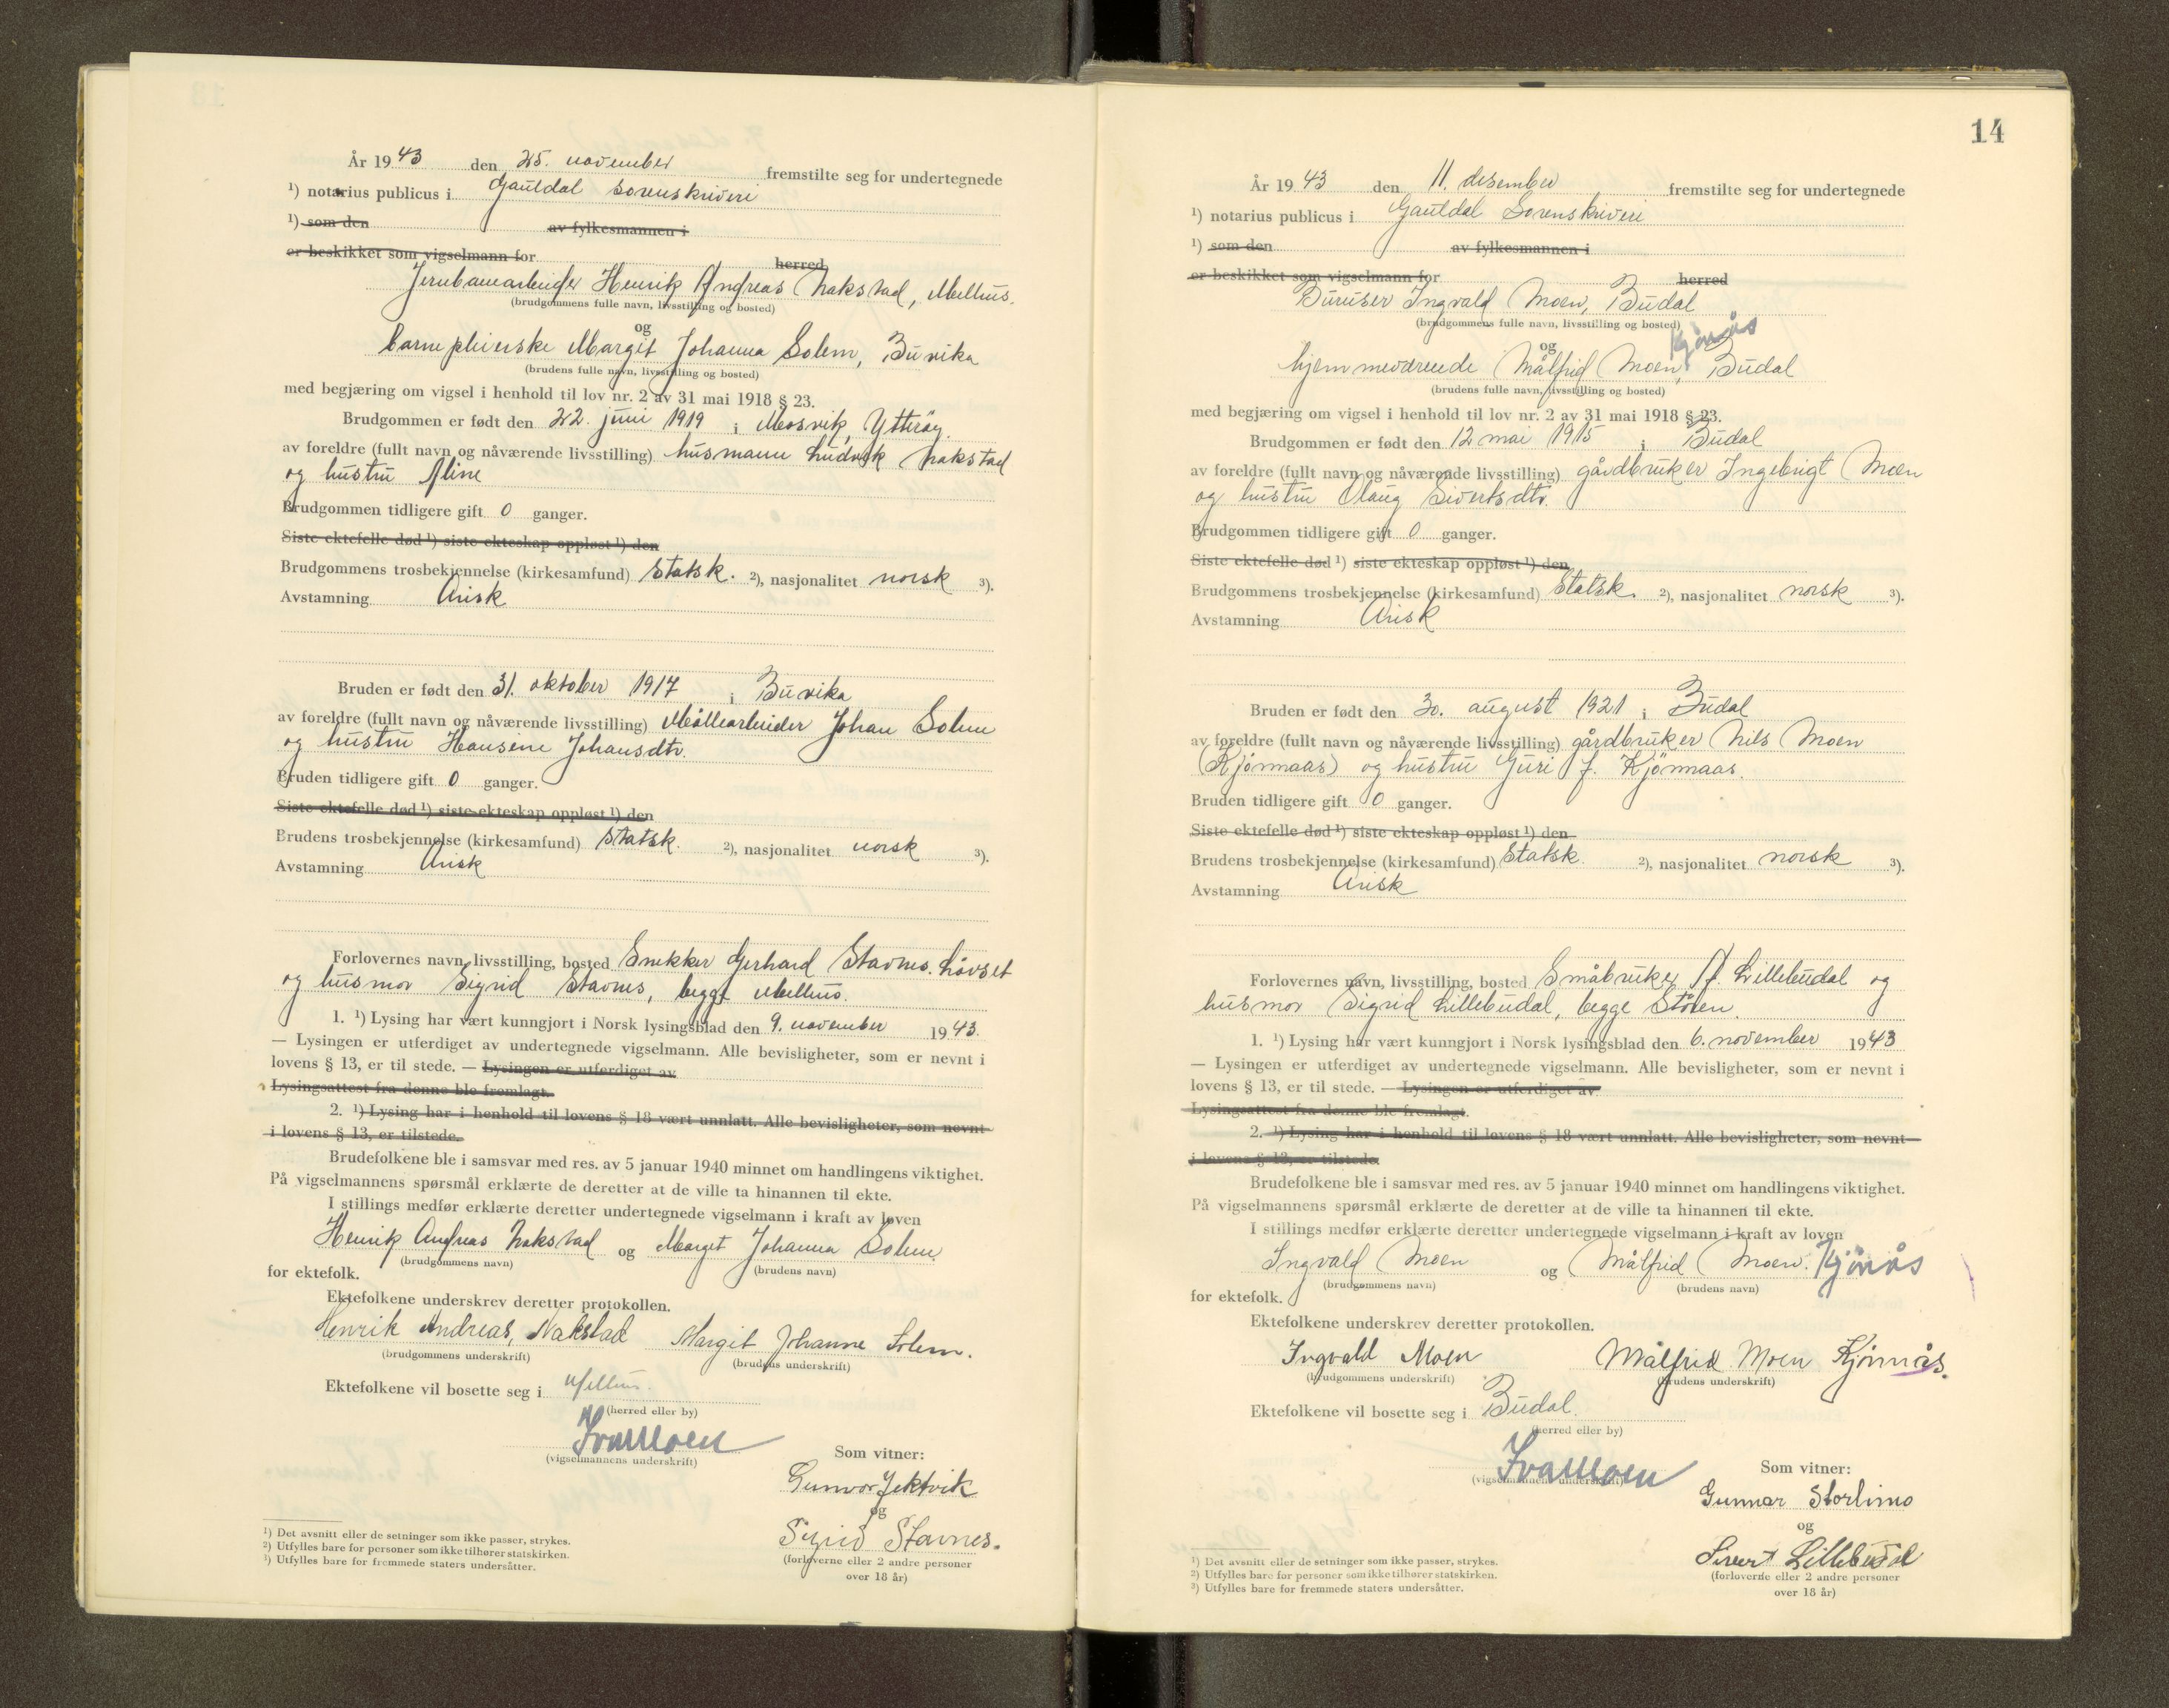 År 1943 den 25. november fremstilte seg for undertegnede
¹) notarius publicus i Gauldal sorenskriveri
¹) som den av fylkesmannen i
er beskikket som vigselmann for herred
Jernbanearbeider Henrik Andreas Nakstad, Melhus.
(brudgommens fulle navn, livsstilling og bosted)
og
barnepleierske Margit Johanna Solem, Buvika
(brudens fulle navn, livsstilling og bosted)
med begjæring om vigsel i henhold til lov nr. 2 av 31 mai 1918 § 23.
Brudgommen er født den 22. juni 1919 i Mosvik, Ytterøy.
av foreldre (fullt navn og nåværende livsstilling) husmann Ludvik Nakstad
og hustru Aline
Brudgommen tidligere gift 0 ganger.
Siste ektefelle død ¹) siste ekteskap oppløst ¹) den
Brudgommens trosbekjennelse (kirkesamfund) Statsk. ²), nasjonalitet norsk ³).
Avstamning Arisk
Bruden er født den 31. oktober 1917 i Buvika
av foreldre (fullt navn og nåværende livsstilling) Møllearbeider Johan Solem
og hustru Hansine Johansdtr.
Bruden tidligere gift 0 ganger.
Siste ektefelle død ¹) siste ekteskap oppløst ¹) den
Brudens trosbekjennelse (kirkesamfund) Statsk. ²), nasjonalitet norsk ³).
Avstamning Arisk
Forlovernes navn, livsstilling, bosted Snekker Gerhard Stavnes. Løvset
og husmor Sigrid Stavnes, begge Melhus.
1. ¹) Lysing har vært kunngjort i Norsk lysingsblad den 9. november 1943.
— Lysingen er utferdiget av undertegnede vigselmann. Alle bevisligheter, som er nevnt i
lovens § 13, er til stede. — Lysingen er utferdiget av
Lysingsattest fra denne ble fremlagt.
2. ¹) Lysing har i henhold til lovens § 18 vært unnlatt. Alle bevisligheter, som nevnt
i lovens § 13, er tilstede.
Brudefolkene ble i samsvar med res. av 5 januar 1940 minnet om handlingens viktighet.
På vigselmannens spørsmål erklærte de deretter at de ville ta hinannen til ekte.
I stillings medfør erklærte deretter undertegnede vigselmann i kraft av loven
Henrik Andreas Nakstad og Marget Johanna Solem
(brudgommens navn) (brudens navn)
for ektefolk.
Ektefolkene underskrev deretter protokollen.
Henrik Andreas, Nakstad Margit Johanne Solem.
(brudgommens underskrift) (brudens underskrift)
Ektefolkene vil bosette seg i Melhus.
(herred eller by)
(vigselmannens underskrift)
Som vitner:
Gunvor Jektvik
og
Sigrid Stavnes.
(forloverne eller 2 andre personer
over 18 år)
¹) Det avsnitt eller de setninger som ikke passer, strykes.
²) Utfylles bare for personer som ikke tilhører statskirken.
³) Utfylles bare for fremmede staters undersåtter.
14
År 1943 den 11. desember fremstilte seg for undertegnede
¹) notarius publicus i Gauldal Sorenskriveri
¹) som den av fylkesmannen i
er beskikket som vigselmann for herred
Buruser Ingvald Moen, Budal
(brudgommens fulle navn, livsstilling og bosted)
og Kjønås
hjemmeværende Målfrid Moen, Budal
(brudens fulle navn, livsstilling og bosted)
med begjæring om vigsel i henhold til lov nr. 2 av 31 mai 1918 § 23.
Brudgommen er født den 12 mai 1915 i Budal
av foreldre (fullt navn og nåværende livsstilling) gårdbruker Ingebrigt Moen
og hustru Olaug Sivertsdtr.
Brudgommen tidligere gift 0 ganger.
Siste ektefelle død ¹) siste ekteskap oppløst ¹) den
Brudgommens trosbekjennelse (kirkesamfund) Statsk. ²), nasjonalitet norsk ³).
Avstamning Arisk
Bruden er født den 30. august 1921 i Budal
av foreldre (fullt navn og nåværende livsstilling) gårdbruker Nils Moen
(Kjønmaas) og hustru Guri f. Kjønmaas.
Bruden tidligere gift 0 ganger.
Siste ektefelle død ¹) siste ekteskap oppløst ¹) den
Brudens trosbekjennelse (kirkesamfund) Statsk. ²), nasjonalitet norsk ³).
Avstamning Arisk
Forlovernes navn, livsstilling, bosted Småbruker A. Lillebudal og
husmor Sigrid Lillebudal, begge Støren.
1. ¹) Lysing har vært kunngjort i Norsk lysingsblad den 6. november 1943
— Lysingen er utferdiget av undertegnede vigselmann. Alle bevisligheter, som er nevnt i
lovens § 13, er til stede. — Lysingen er utferdiget av
Lysingsattest fra denne ble fremlagt.
2. ¹) Lysing har i henhold til lovens § 18 vært unnlatt. Alle bevisligheter, som nevnt
i lovens § 13, er tilstede.
Brudefolkene ble i samsvar med res. av 5 januar 1940 minnet om handlingens viktighet.
På vigselmannens spørsmål erklærte de deretter at de ville ta hinannen til ekte.
I stillings medfør erklærte deretter undertegnede vigselmann i kraft av loven
Ingvald Moen og Målfrid Moen. Kjønås
(brudgommens navn) (brudens navn)
for ektefolk.
Ektefolkene underskrev deretter protokollen.
Ingvald Moen Målfrid Moen Kjønnås.
(brudgommens underskrift) (brudens underskrift)
Ektefolkene vil bosette seg i Budal.
(herred eller by)
(vigselmannens underskrift)
Som vitner:
Gunnar Storlimo
og
Sivert Lillebudal
(forloverne eller 2 andre personer
over 18 år)
¹) Det avsnitt eller de setninger som ikke passer, strykes.
²) Utfylles bare for personer som ikke tilhører statskirken.
³) Utfylles bare for fremmede staters undersåtter.